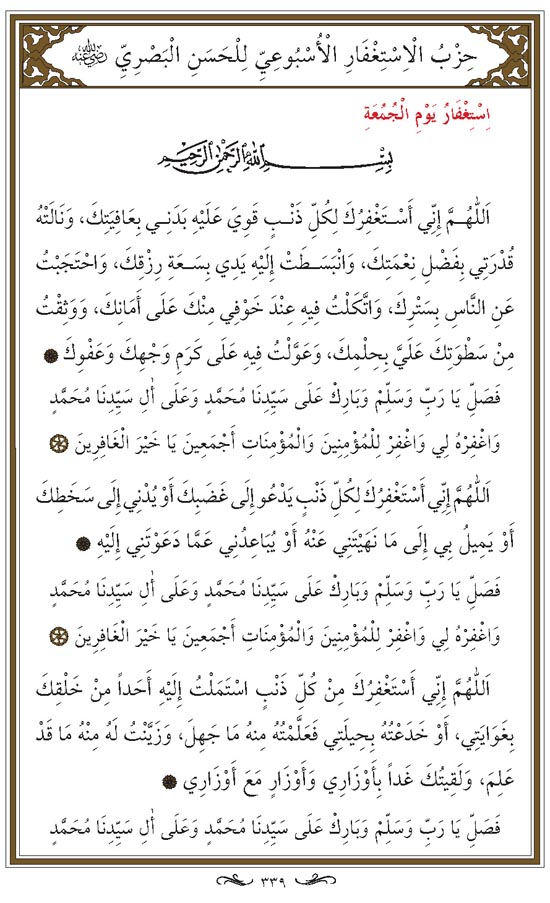 حِزْبُ الْاِسْتِغْفَارِ الْأُسْبُوعِيِّ لِلْحَسَنِ الْبَصْرِيِّ رَضِيَ اللهُ عَنْهُ
اِسْتِغْفَارُ يَوْمِ الْجُمُعَةِ
بِسْمِ اللهِ الرَّحْمٰنِ الرَّحِيمِ
اَللّٰهُمَّ إِنِّي أَسْتَغْفِرُكَ لِكُلِّ ذَنْبٍ قَوِيَ عَلَيْهِ بَدَنِي بِعَافِيَتِكَ، وَنَالَتْهُ
قُدْرَتِي بِفَضْلِ نِعْمَتِكَ، وَانْبَسَطَتْ إِلَيْهِ يَدِي بِسَعَةِ رِزْقِكَ، وَاحْتَجَبْتُ
عَنِ النَّاسِ بِسَتْرِكَ، وَاتَّكَلْتُ فِيهِ عِنْدَ خَوْفِي مِنْكَ عَلَى أَمَانِكَ، وَوَثِقْتُ
مِنْ سَطْوَتِكَ عَلَيَّ بِحِلْمِكَ، وَعَوَّلْتُ فِيهِ عَلَى كَرَمِ وَجْهِكَ وَعَفْوِكَ
فَصَلِّ يَا رَبِّ وَسَلِّمْ وَبَارِكْ عَلَى سَيِّدِنَا مُحَمَّدٍ وَعَلَى أٰلِ سَيِّدِنَا مُحَمَّدٍ
وَاغْفِرْهُ لِي وَاغْفِرْ لِلْمُؤْمِنِينَ وَالْمُؤْمِنَاتِ أَجْمَعِينَ يَا خَيْرَ الْغَافِرِينَ
اَللّٰهُمَّ إِنِّي أَسْتَغْفِرُكَ لِكُلِّ ذَنْبٍ يَدْعُو إِلَى غَضَبِكَ أَوْ يُدْنِي إِلَى سَخَطِكَ
أَوْ يَمِيلُ بِي إِلَى مَا نَهَيْتَنِي عَنْهُ أَوْ يُبَاعِدُنِي عَمَّا دَعَوْتَنِي إِلَيْهِ
فَصَلِّ يَا رَبِّ وَسَلِّمْ وَبَارِكْ عَلَى سَيِّدِنَا مُحَمَّدٍ وَعَلَى أٰلِ سَيِّدِنَا مُحَمَّدٍ
وَاغْفِرْهُ لِي وَاغْفِرْ لِلْمُؤْمِنِينَ وَالْمُؤْمِنَاتِ أَجْمَعِينَ يَا خَيْرَ الْغَافِرِينَ
اَللّٰهُمَّ إِنِّي أَسْتَغْفِرُكَ مِنْ كُلِّ ذَنْبٍ اسْتَمَلْتُ إِلَيْهِ أَحَداً مِنْ خَلْقِكَ
بِغَوَايَتِي، أَوْ خَدَعْتُهُ بِحِيلَتِي فَعَلَّمْتُهُ مِنهُ مَا جَهِلَ، وَزَيَّنْتُ لَهُ مِنْهُ مَا قَدْ
عَلِمَ، وَلَقِيتُكَ غَداً بِأَوْزَارِي وَأَوْزَارٍ مَعَ أَوْزَارِي
فَصَلِّ يَا رَبِّ وَسَلِّمْ وَبَارِكْ عَلَى سَيِّدِنَا مُحَمَّدٍ وَعَلَى أٰلِ سَيِّدِنَا مُحَمَّدٍ
٣٣٩